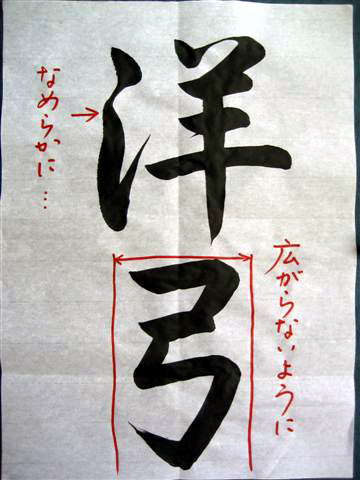 洋弓
なめらかに…
広がらないように